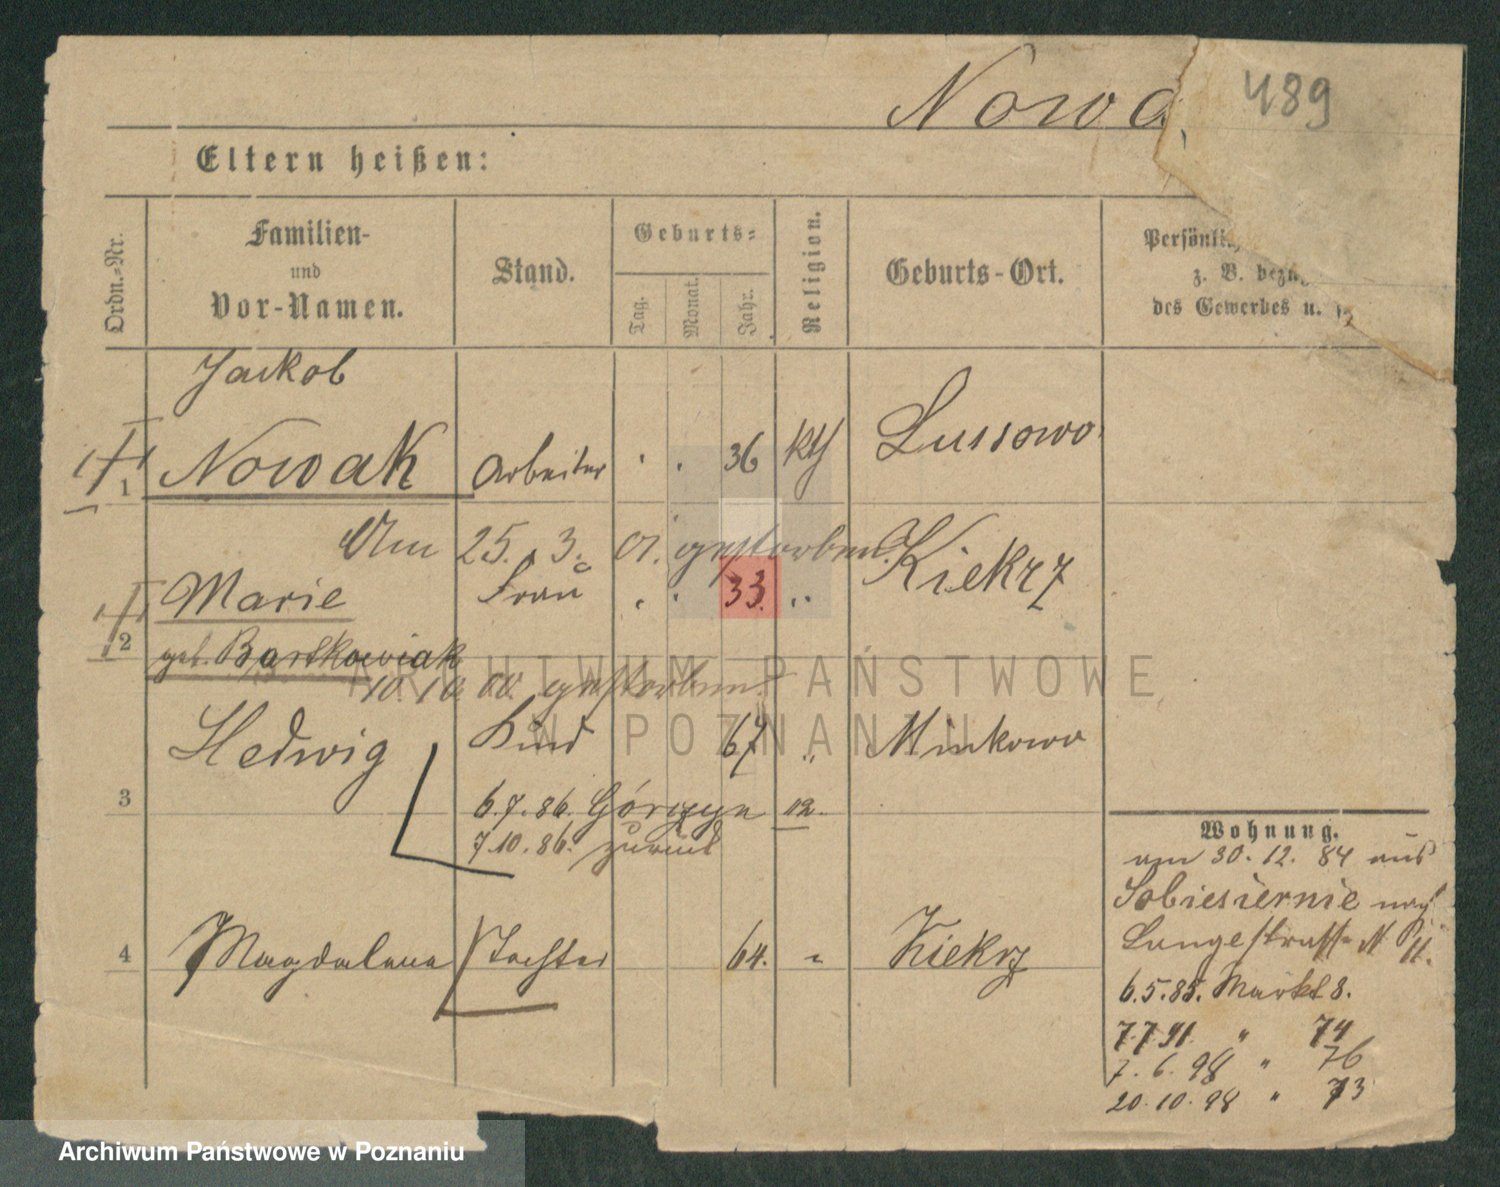 Nowa
489
Eltern heißen:
Ordn.-Nr.
Familien-
und
Vor-Namen.
Stand.
Geburts=
Tag.
Monat.
Jahr.
Religion.
Geburts-Ort.
Persönli
z. B. bezüg
des Gewerbes u. s
Jackob
1 Nowak Arbeiter . . 36 kth Lussowo
Am 25. 3. 01. gestorben.
2 Marie Frau . . 33. " Kiekrz
geb. Bartkowiak
10.10.00. gestorben.
3 Hedwig Kind 67 " Minkowo
6.7.86. Górczyn 12.
7.10.86. zurück
4 Magdalena Tochter 64. " Kiekrz
Wohnung.
am 30. 12. 84 aus
Sobiesiernie nach
Langestrasse N
6.5.85. Markt 8.
7.7.91 " 74
7. 6. 98 " 76
20.10.98 " 73
ARCHIWUM PAŃSTWOWE
W POZNANIU
Archiwum Państwowe w Poznaniu